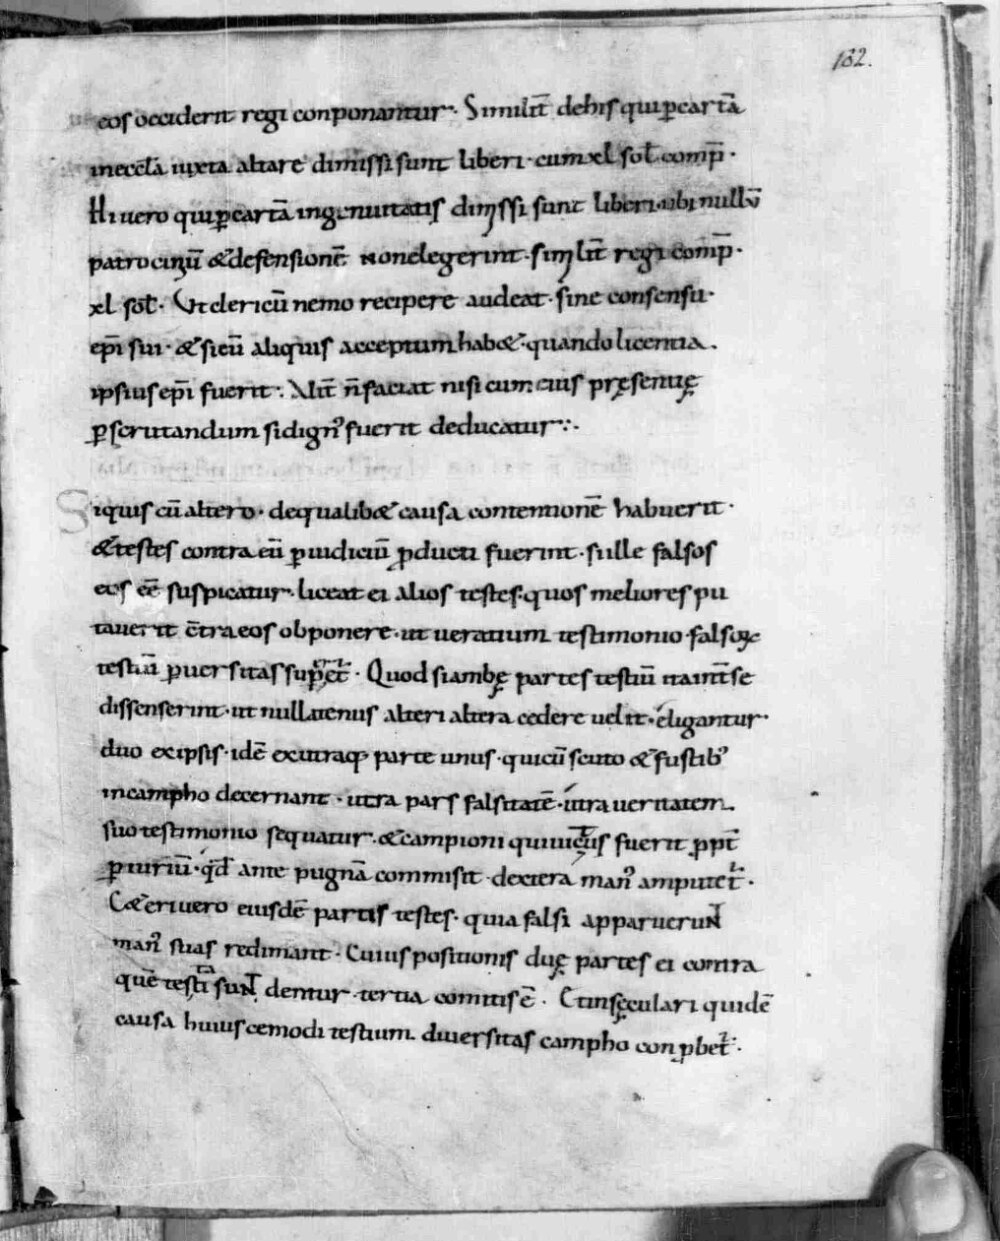 182.
eos occiderit regi conponantur. Similit̄ dehis qui ꝑ cartā
inecclā iuxta altare dimissi sunt liberi · cum xl sol comp̄ ·
Hi uero qui ꝑ cartā ingenuitatis dimissi sunt liberi · ubi nullū
patrociniū & defensionē non elegerint · similit̄ regi comp̄ ·
xl sol · Ut clericū nemo recipere audeat · sine consensu ·
ep̄i sui · & si eū aliquis acceptum hab& · quando licentia .
ipsius ep̄i fuerit : Alit̄ n̄ faciat nisi cum eius pręsentię
ꝑscrutandum si dignꝰ fuerit deducatur ·:·
Siquis cū altero · de qualib& causa contentionē habuerit ·
& testes contra eū ꝑ iudiciū ꝓducti fuerint · si ille falsos
eos eē suspicatur · liceat ei alios testes · quos meliores pu
tauerit c̄tra eos obponere · ut ueratium testimonio falsoꝝ
testiū ꝑuersitas supet̄ · Quod si ambę partes testiū ita int̄ se
dissenserint · ut nullatenus alteri altera cedere uelit · eligantur ·
duo ex ipsis · idē ex utraq; parte unus · qui cū scuto & fustibꝰ
in campho decernant · utra pars falsitatē · utra ueritatem
suo testimonio sequatur · & campioni qui uictus fuerit ꝓpt̄
ꝑiuriū · qd̄ ante pugnā commisit · dextera manꝰ amputet̄ ·
C&eri uero eiusdē partis testes · quia falsi apparuerunt
manꝰ suas redimant · Cuius positionis duę partes ei contra
quē testati sunt dentur · tertia comitis ē · Et in sęculari quidē
causa huiuscemodi testium diuersitas campho conꝓbet̄ ·